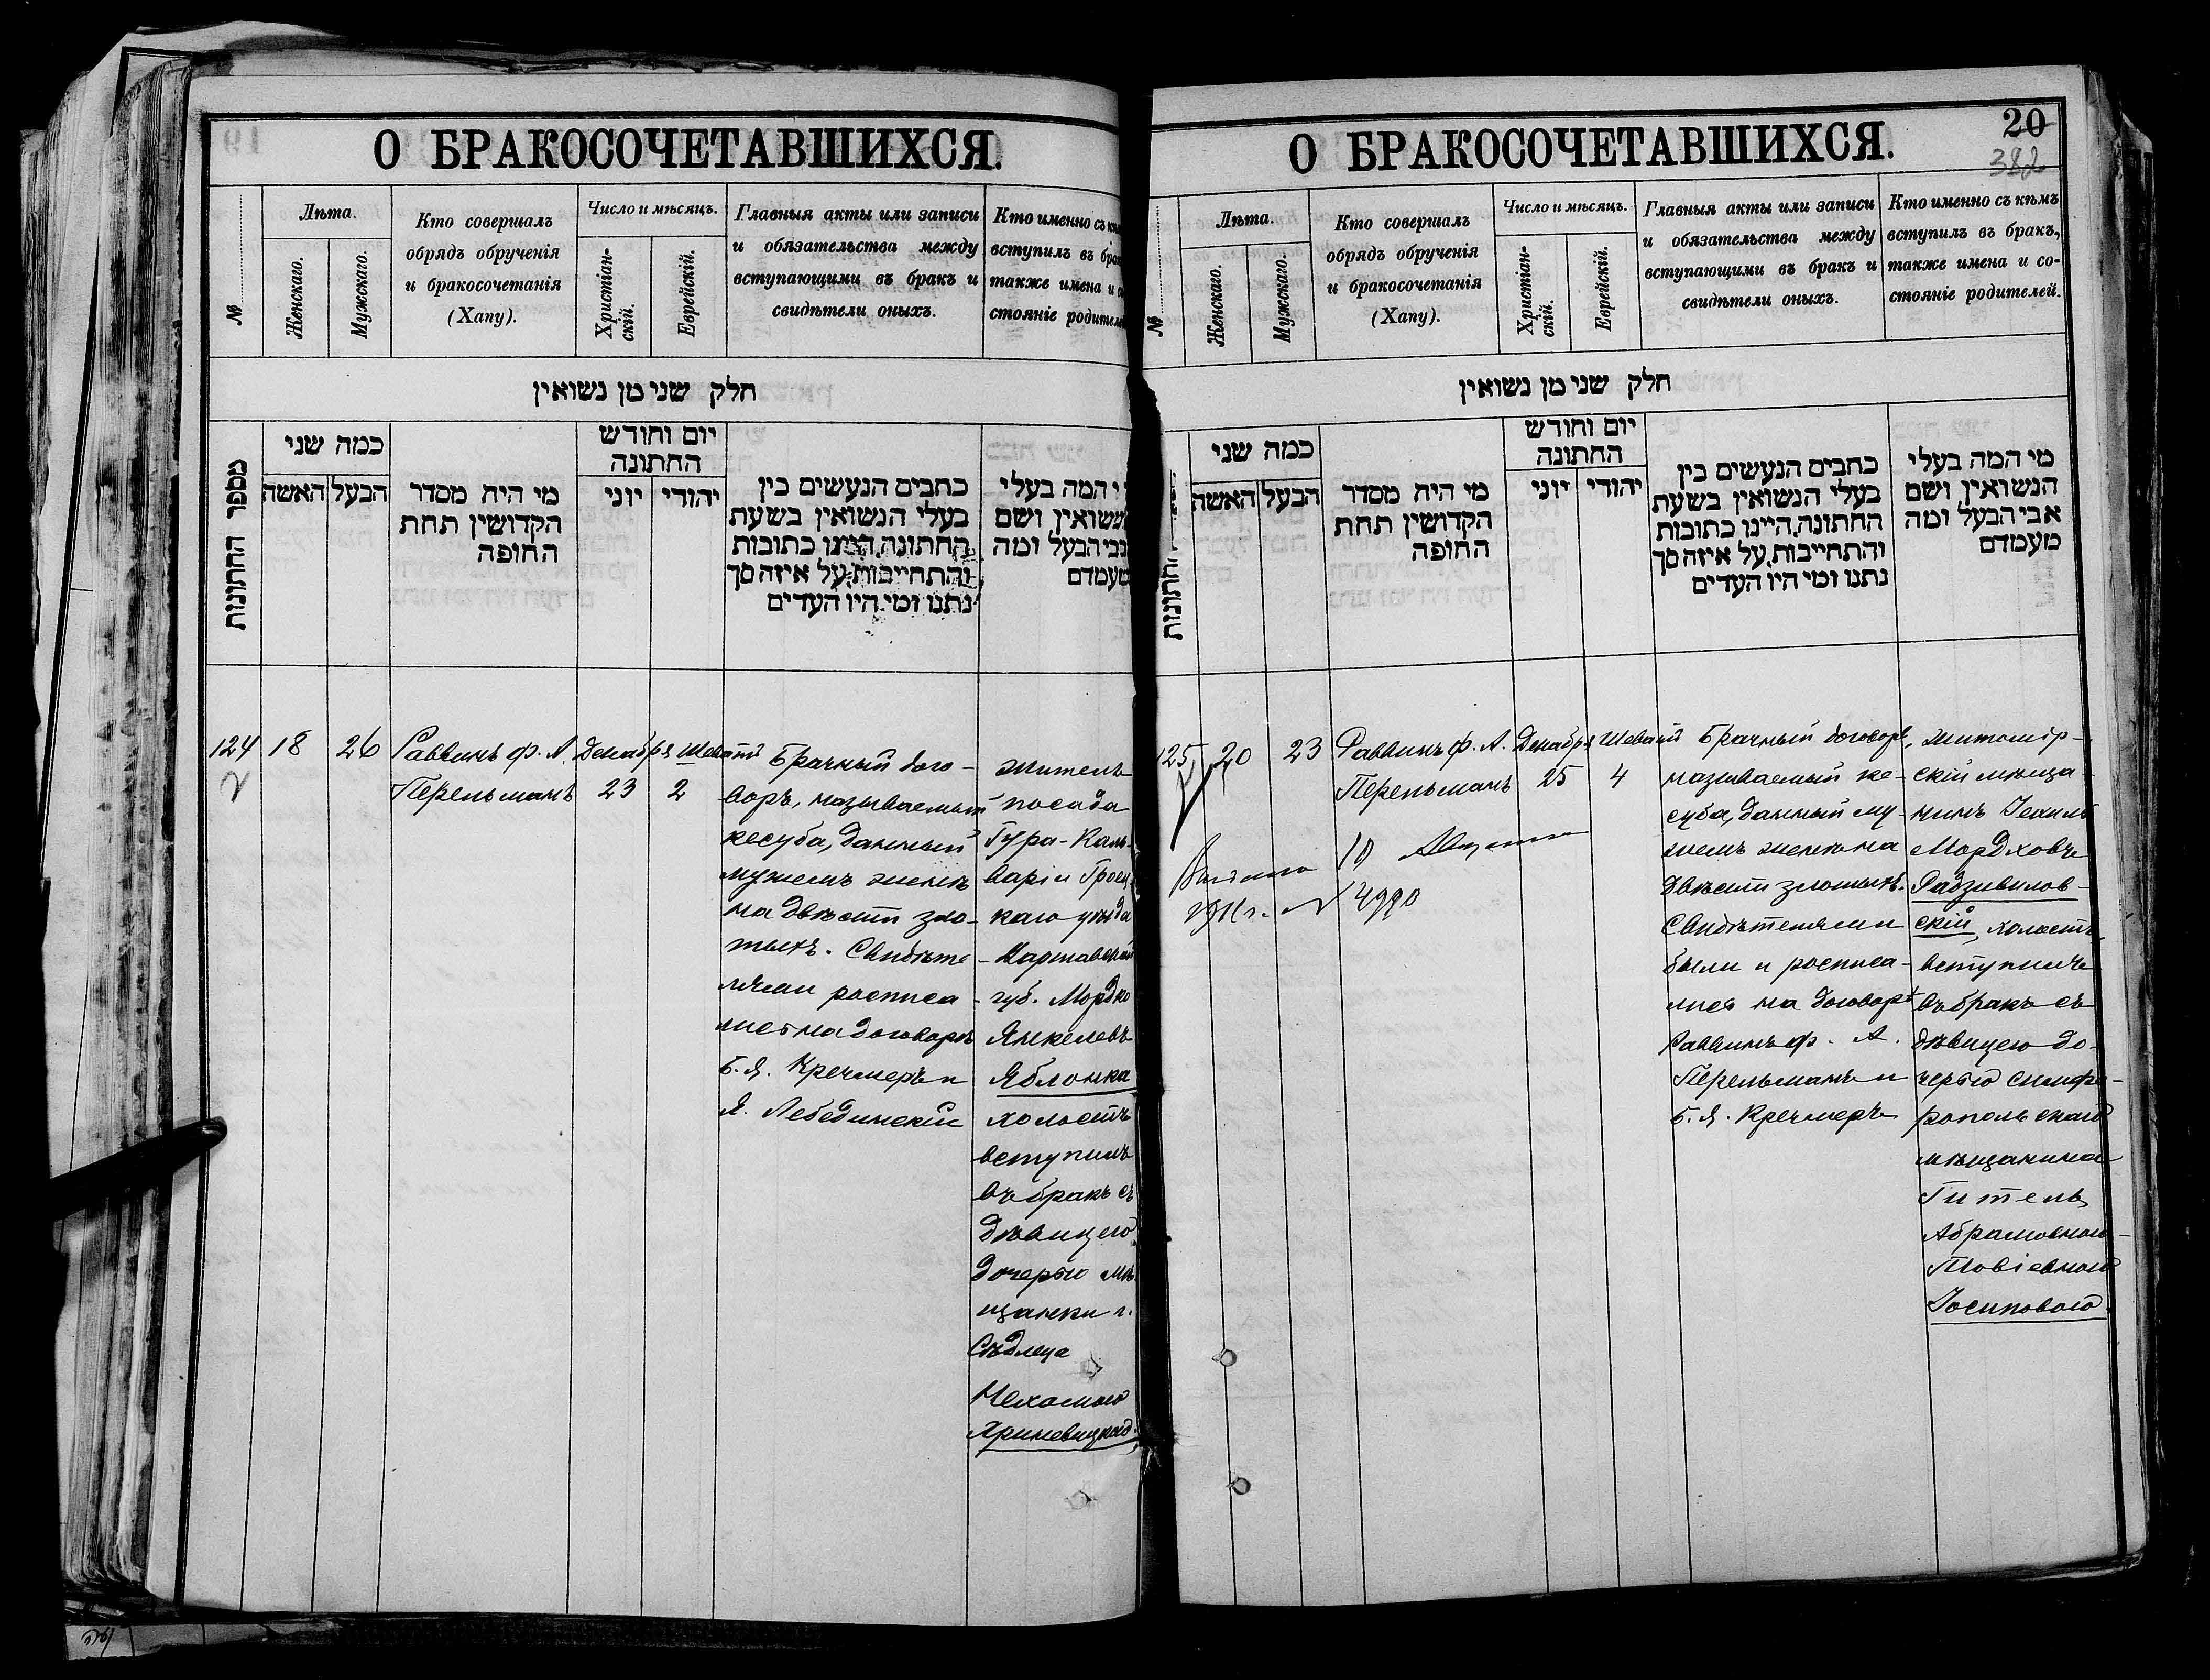 О БРАКОСОЧЕТАВШИХСЯ.
№
Лѣта.
Женскаго.
Мужскаго.
Кто совершалъ
обрядъ обрученія
и бракосочетанія
(Хапу).
Число и мѣсяцъ.
Христіан-
скій.
Еврейскій.
Главныя акты или записи
и обязательства между
вступающими въ бракъ и
свидѣтели оныхъ.
Кто именно съ
вступилъ въ
также имена и
стояніе
חלק שני מן נשואין
מספר החתונות
כמה שני
הבעל
האשה
מי היה מסדר
הקדושין תחת
החופה
יום וחודש
החתונה
יהודי
יוני
כתבים הנעשים בין
בעלי הנשואין בשעת
החתונה היינו כתובות
והתחייבות על איזה סך
נתנו ומי היו העדים
המה בעלי
ושם
ומה
מעמדם
124
18
26
Раввинъ ф. А.
Перельманъ
Декабря
23
Шеватъ
2
Брачный дого-
воръ, называемый
кесуба, данный
мужемъ женѣ
на двѣсти зло-
тыхъ. Свидѣте-
лями росписа-
лись на договорѣ
Б. Я. Кречмеръ и
Я. Лебединскій
житель
посада
Гура-Каль-
варіи Гроец-
каго уѣзда
Варшавской
губ. Мордко
Янкелевъ
Яблонка
холостъ
вступилъ
въ бракъ съ
дѣвицею
дочерью мѣ-
щанки г.
Сѣдлеца
Нехамою
Хриневицкой.
О БРАКОСОЧЕТАВШИХСЯ.
20
382
№
Лѣта.
Женскаго.
Мужскаго.
Кто совершалъ
обрядъ обрученія
и бракосочетанія
(Хапу).
Число и мѣсяцъ.
Христіан-
скій.
Еврейскій.
Главныя акты или записи
и обязательства между
вступающими въ бракъ и
свидѣтели оныхъ.
Кто именно съ кѣмъ
вступилъ въ бракъ,
также имена и со-
стояніе родителей.
חלק שני מן נשואין
החתונות
כמה שני
הבעל
האשה
מי היה מסדר
הקדושין תחת
החופה
יום וחודש
החתונה
יהודי
יוני
כתבים הנעשים בין
בעלי הנשואין בשעת
החתונה היינו כתובות
והתחייבות על איזה סך
נתנו ומי היו העדים
מי המה בעלי
הנשואין ושם
אבי הבעל ומה
מעמדם
125
20
23
Раввинъ ф. А.
Перельманъ
Декабря
25
Шеватъ
4
Брачный договоръ,
называемый ке-
суба, данный му-
жемъ женѣ на
двѣсти злотыхъ.
Свидѣтелями
были и росписа-
лись на договорѣ
Раввинъ ф. А.
Перельманъ и
Б. Я. Кречмеръ
житомір-
скій мѣща-
нинъ Іехиль
Мордховъ
Радзивилов-
скій, холостъ,
вступилъ
въ бракъ съ
дѣвицею до-
черью симфе-
ропольскаго
мѣщанина
Гитель
Абрамовною-
Товіевною
Іосиповою.
10
1911 г. №4990